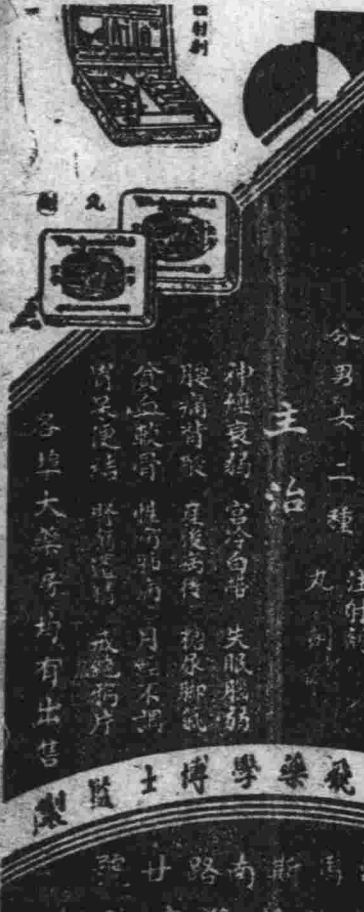 射劑
丸劑
分男女二種
注射
丸劑
主治
神經衰弱 宮冷白帶 失眠腦弱
腰痛背酸 產後病後 糖尿腳氣
貧血軟骨 月經不調
胃呆便結 腎虧遺精 戒絕鴉片
各埠大藥房均有出售
飛藥學博士監製
馬斯南路廿號